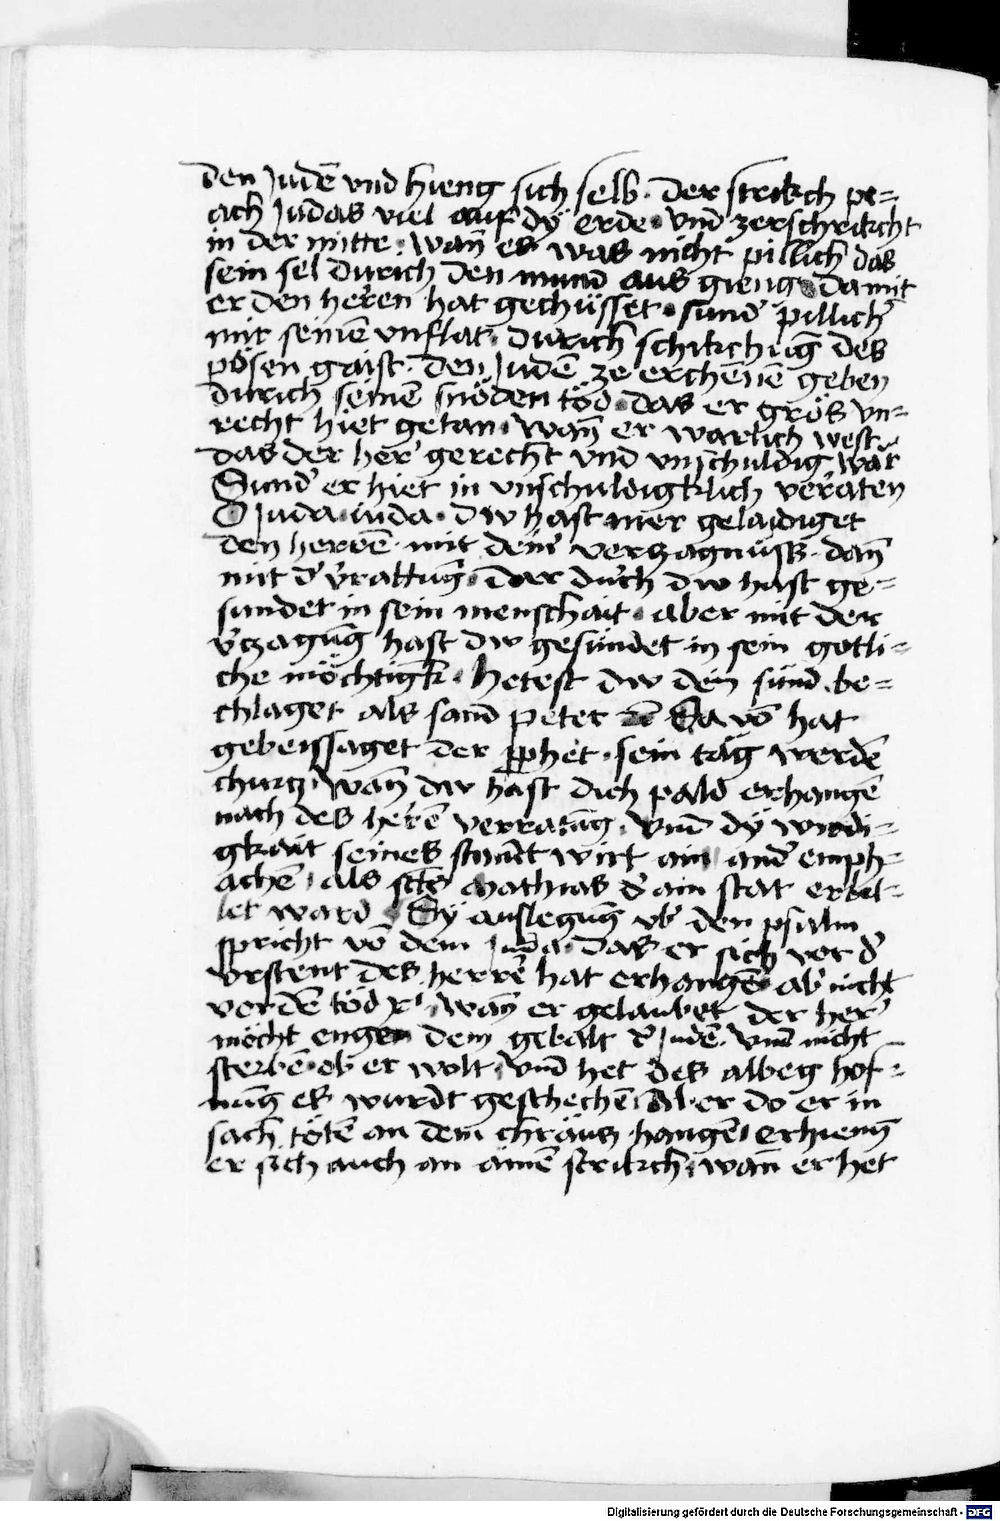 den Judē vnd hieng sich selb · der strikch pr=
ach Judas viel auf dÿ erde · vnd zerschrikcht
in der mitte · wañ es was nicht pillich das
sein sel durich den mund aus gieng · da mit
er den herren hat gechüsset · sund' pillich
mit seinē vnflat · durich schikchūg des
pösen gaist · den Judē ze erchēnē geben
durich seinē snöden töd · das er grös vn=
recht hiet getan · wañ er warlich west
das der her' gerecht vnd vnschuldig wär
Sund' er hiet in vnschuldigklich verraten
O Juda iuda · dw hast mer gelaidiget
den herrē · mit deir verzagnüss · dañ
mit d' v'rattūg · Dar durch dw hast ge=
sundet in sein menschait · aber mit der
v'tzagūg hast dw gesündet in sein gotli=
che möchtigk · hetest dw dein sünd be=
chlaget als sand peter Da vō hat
gebeissaget der pphet · sein täg werdē
churtz · wañ dw hast dich pald erhangē
nach des herrē verratūg · vnd dÿ wirdi=
gkait seines stant wirt ain and' emph=
achē · als scts Mathias d' ain stat erbit=
let ward Dÿ auslegūg vb' den psalm
spricht vō dem Juda · das er sich vor d'
vrstent des herrē hat erhangē · ab' nicht
vor dē töd x' · wañ er gelaubet der her'
möcht engen dem gebalt d' Judē · vnd nicht
sterbē · ob er wolt · vnd het des albeg hof=
nūg es wurdt geschechē · Aber do er in
sach tötē an dem chräutz hangē · erhieng
er sich auch an ainē strikch · wañ er het
Digitalisierung gefördert durch die Deutsche Forschungsgemeinschaft - DFG